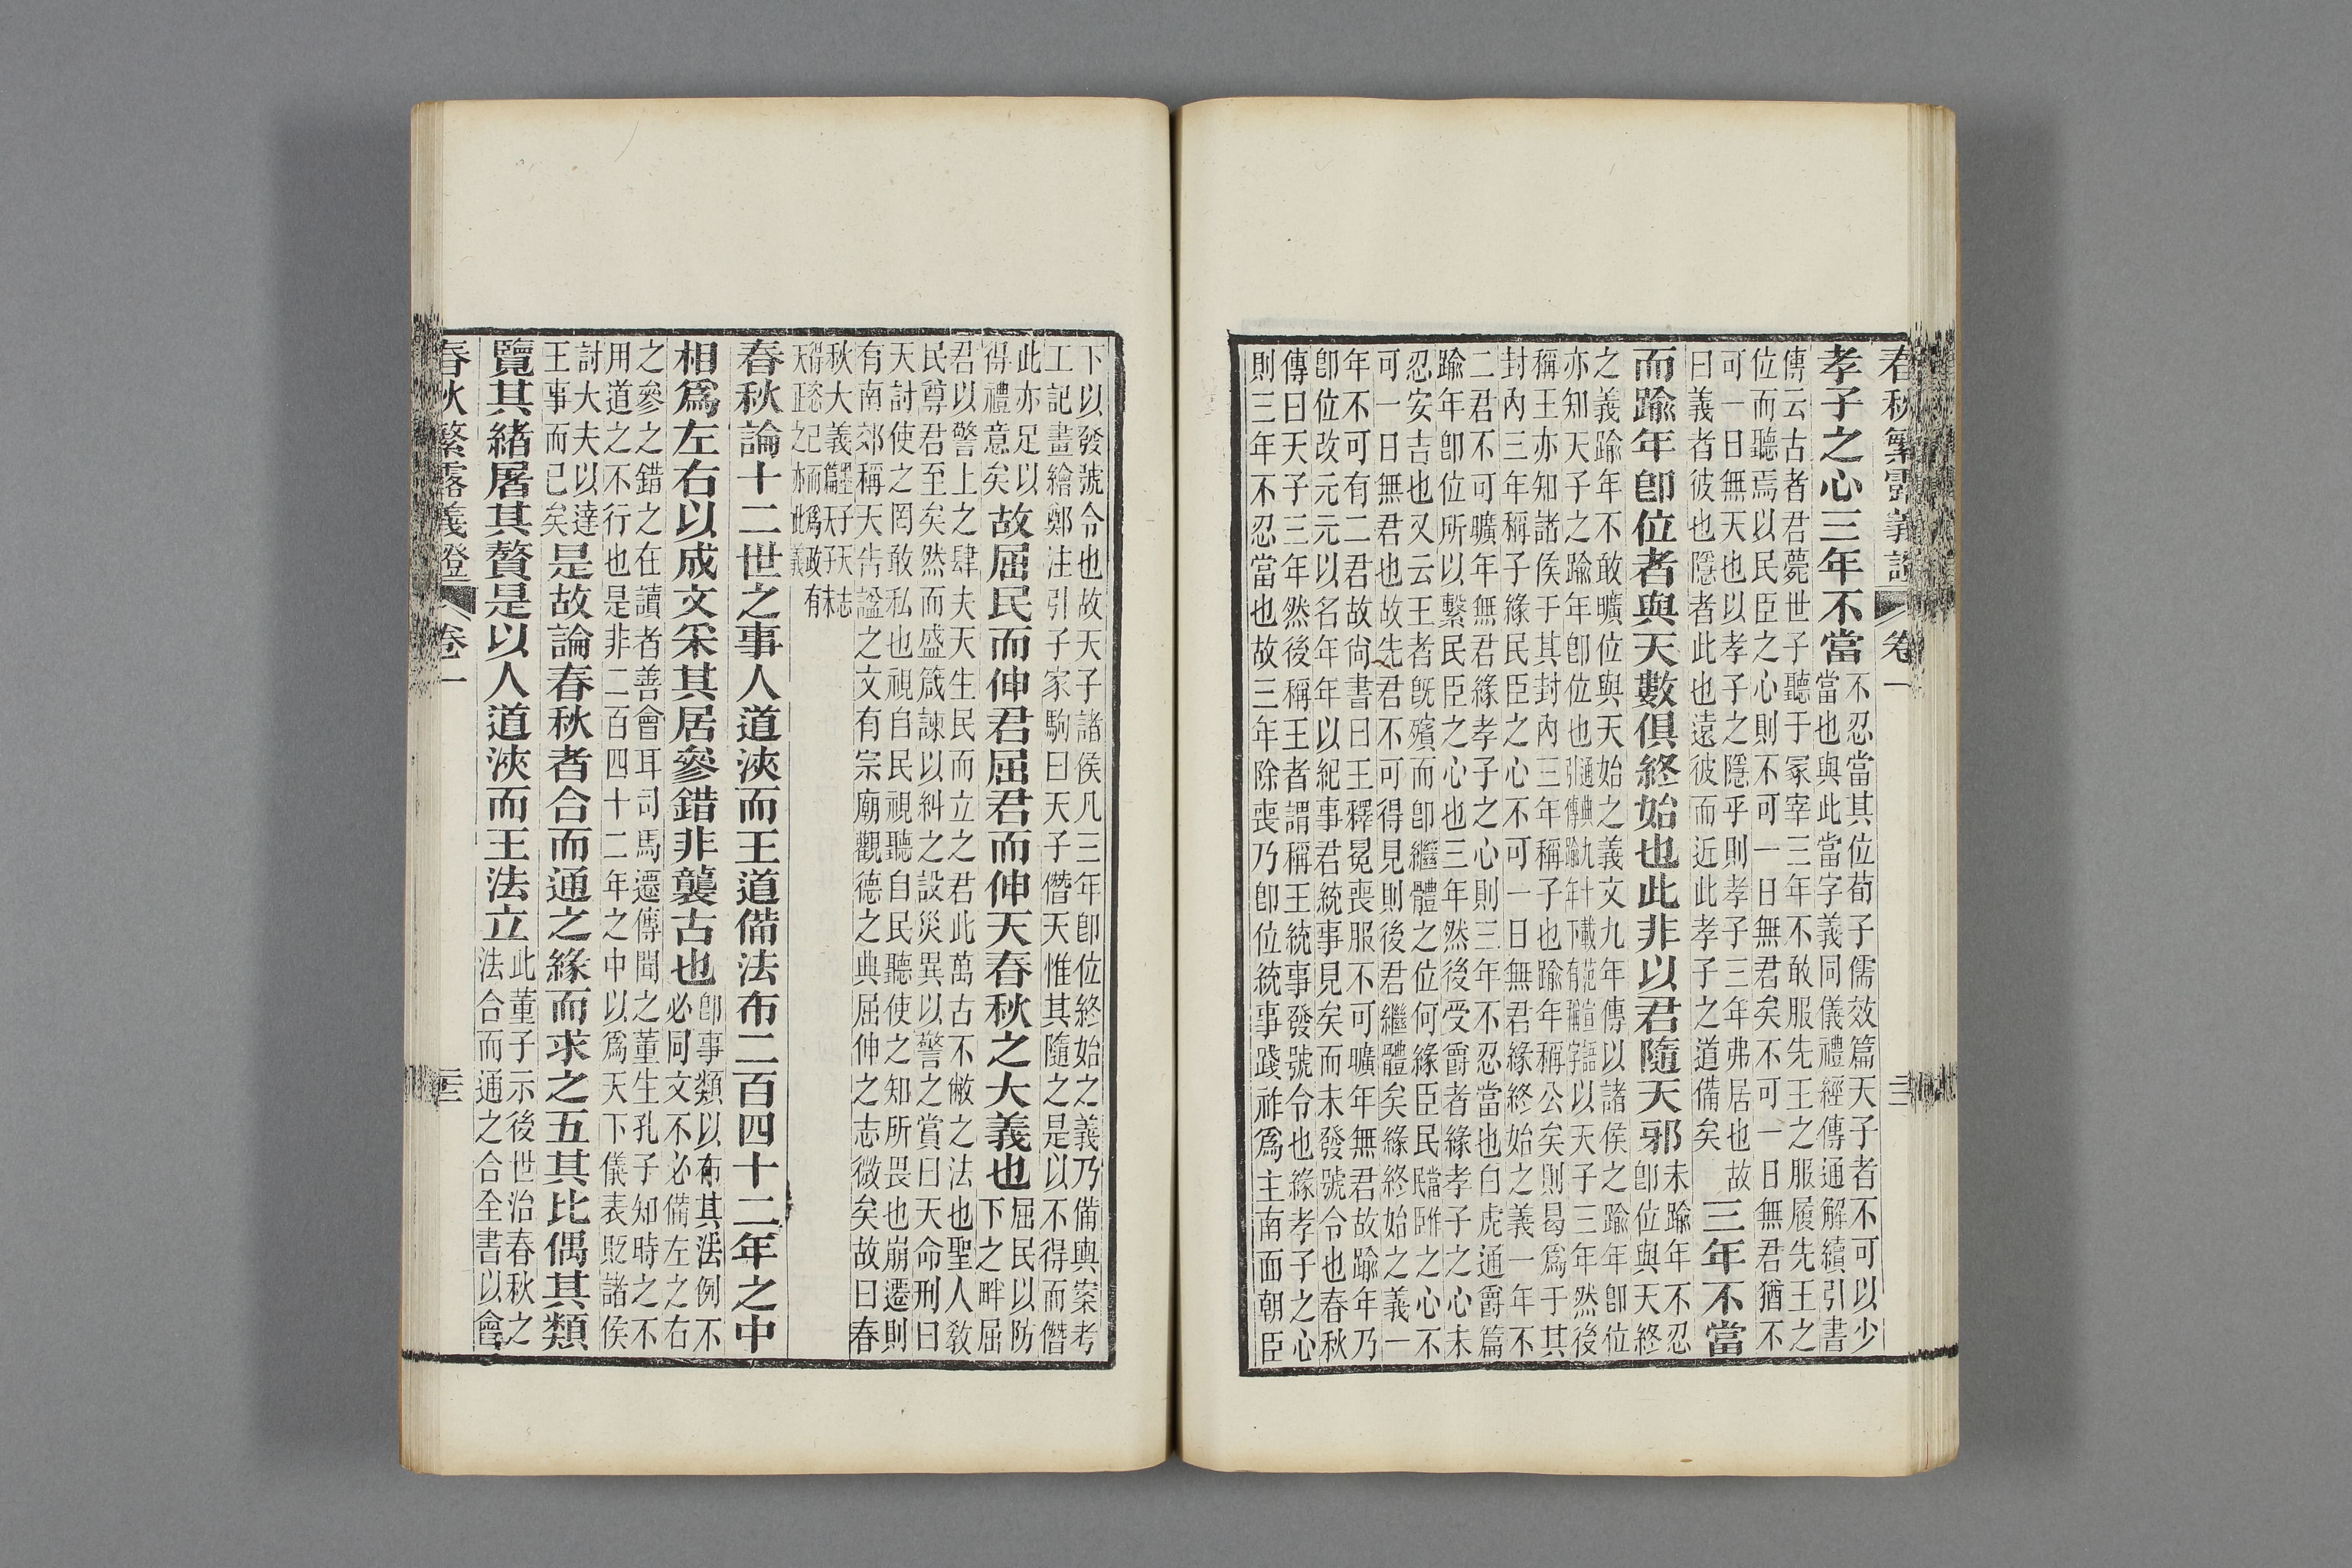 春秋繁露義證 卷一
孝子之心三年不當
不忍當其位荀子儒效篇天子者不可以少
當也與此當字義同儀禮經傳通解續引書
傳云古者君薨世子聽于冢宰三年不敢服先王之服履先王之
位而聽焉以民臣之心則不可一日無君矣不可一日無君猶不
可一日無天也以孝子之隱乎則孝子三年弗居也故
曰義者彼也隱者此也遠彼而近此孝子之道備矣
三年不當
而踰年卽位者與天數俱終始也此非以君隨天邪
未踰年不忍
卽位與天終
之義踰年不敢曠位與天始之義文九年傳以諸侯之踰年卽位
亦知天子之踰年卽位也通典九十載范宣語引傳踰年下有稱字以天子三年然後
稱王亦知諸侯于其封內三年稱子也踰年稱公矣則曷爲于其
封內三年稱子緣民臣之心不可一日無君緣終始之義一年不
二君不可曠年無君緣孝子之心則三年不忍當也白虎通爵篇
踰年卽位所以繫民臣之心也三年然後受爵者緣孝子之心未
忍安吉也又云王者旣殯而卽繼體之位何緣臣民當作民臣之心不
可一日無君也故先君不可得見則後君繼體矣緣終始之義一
年不可有二君故尚書曰王釋冕喪服不可曠年無君故踰年乃
卽位改元元以名年年以紀事君統事見矣而未發號令也春秋
傳曰天子三年然後稱王者謂稱王統事發號令也緣孝子之心
則三年不忍當也故三年除喪乃卽位統事踐祚爲主南面朝臣
下以發號令也故天子諸侯凡三年卽位終始之義乃備輿案考
工記畫繪鄭注引子家駒曰天子僭天惟其隨之是以不得而僭
此亦足以
得禮意矣
故屈民而伸君屈君而伸天春秋之大義也
屈民以防
下之畔屈
君以警上之肆夫天生民而立之君此萬古不敝之法也聖人敎
民尊君至矣然而盛箴諫以糾之設災異以警之賞曰天命刑曰
天討使之罔敢私也視自民視聽自民聽使之知所畏也崩遷則
有南郊稱天告謚之文有宗廟觀德之典屈伸之志微矣故曰春
秋大義墨子天志篇天子未
得恣己而爲政有天正之亦此義
春秋論十二世之事人道浹而王道備法布二百四十二年之中
相爲左右以成文采其居參錯非襲古也
卽事類以布其法例不
必同文不必備左之右
之參之錯之在讀者善會耳司馬遷傳聞之董生孔子知時之不
用道之不行也是非二百四十二年之中以爲天下儀表貶諸侯
討大夫以達
王事而已矣
是故論春秋者合而通之緣而求之五其比偶其類
覽其緒屠其贅是以人道浹而王法立
此董子示後世治春秋之
法合而通之合全書以會
春秋繁露義證 卷一